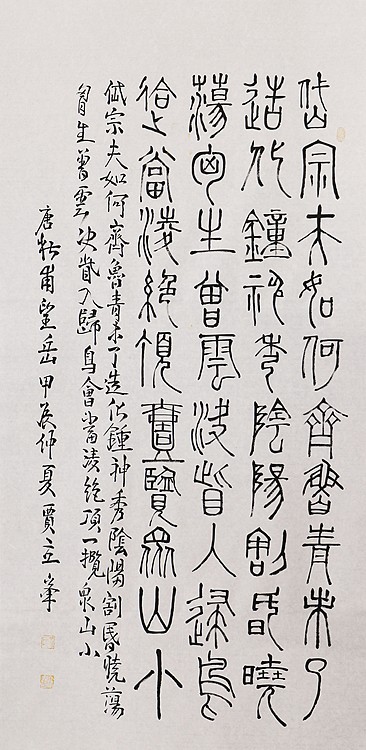 岱宗夫如何齊魯青未了
造化鐘神秀陰陽割昏曉
蕩胸生曾雲決眥入歸鳥
會當凌絕頂壹覽眾山小
岱宗夫如何齊魯青未了造化鍾神秀陰陽割昏曉蕩
胸生曾雲決眥入歸鳥會當凌絕頂一攬眾山小
唐杜甫望岳甲辰仲夏賈立峯